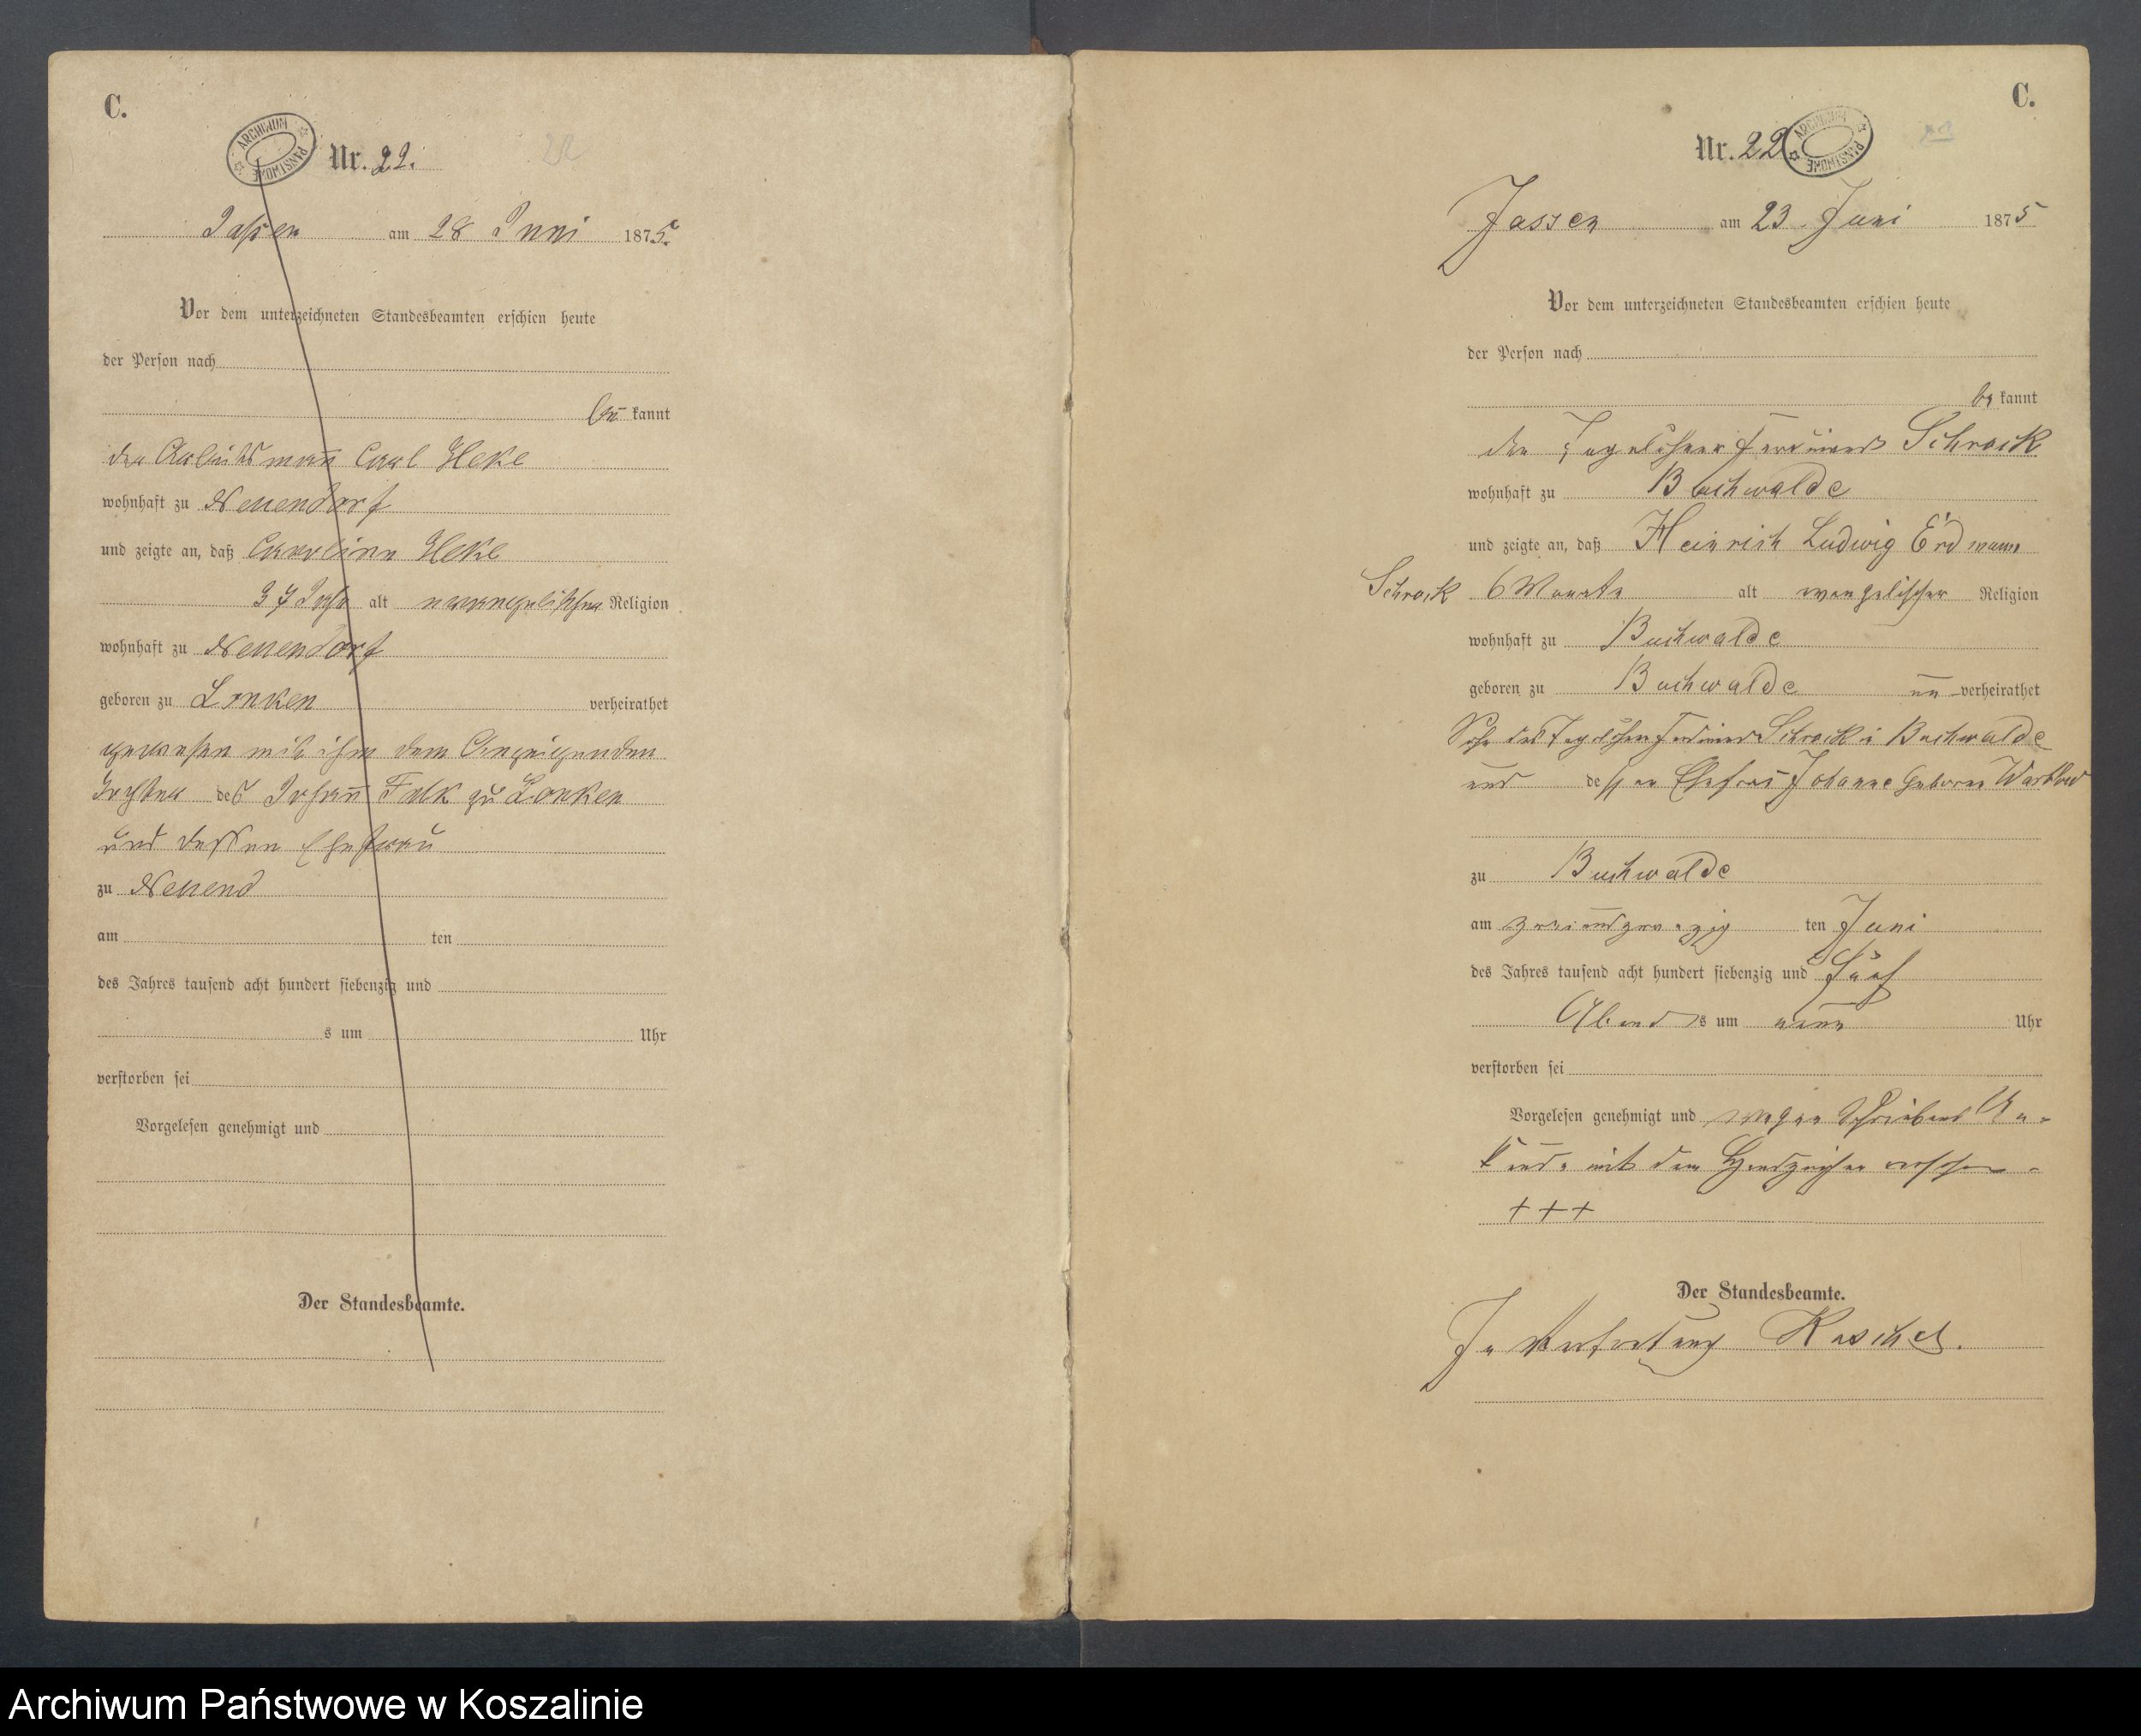 C.
ARCHIWUM PAŃSTWOWE
Nr. 22.
22
Jassen am 28 Juni 1875.
Vor dem unterzeichneten Standesbeamten erschien heute
der Person nach
be kannt
der Arbeitsmann Carl Heke
wohnhaft zu Neuendorf
und zeigte an, daß Caroline Heke
37 Jahr alt evangelischer Religion
wohnhaft zu Neuendorf
geboren zu Lonken verheirathet
gewesen mit ihm dem Anzeigenden
Tochter des Johann Falk zu Lonken
und dessen Ehefrau
zu Neuend
am ten
des Jahres tausend acht hundert siebenzig und
s um Uhr
verstorben sei
Vorgelesen genehmigt und
Der Standesbeamte.
C.
Nr. 22
ARCHIWUM PAŃSTWOWE
Jassen am 23 Juni 1875
Vor dem unterzeichneten Standesbeamten erschien heute
der Person nach
be kannt
der Tagelöhner Ferdinand Schrock
wohnhaft zu Buchwalde
und zeigte an, daß Heinrich Ludwig Erdmann
Schrock 6 Monate alt evangelischer Religion
wohnhaft zu Buchwalde
geboren zu Buchwalde un verheirathet
Sohn des Tagelöhner Ferdinand Schrock in Buchwalde
und dessen Ehefrau Johanne geborne
zu Buchwalde
am zweiundzwanzig ten Juni
des Jahres tausend acht hundert siebenzig und fünf
Abends um neun Uhr
verstorben sei
Vorgelesen genehmigt und wegen Schreibens Un-
kunde mit dem Handzeichen versehen
+++
Der Standesbeamte.
In Vertretung Raschel.
Archiwum Państwowe w Koszalinie